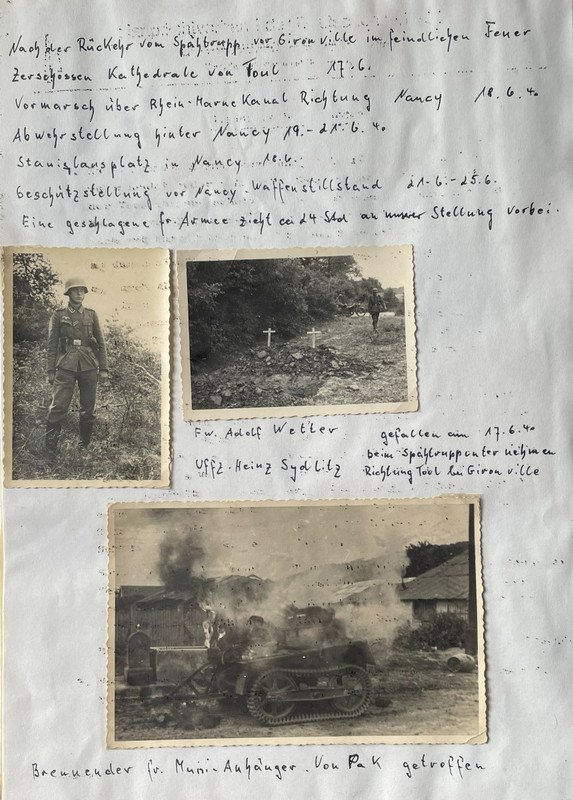 Nach der Rückehr vom Spähtrupp vor Gironville im feindlichen Feuer
Zerschossen Kathedrale von Toul 17.6.
Vormarsch über Rhein-Marne Kanal Richtung Nancy 18.6.40
Abwehrstellung hinter Nancy 19.-21.6.40
Stanislausplatz in Nancy 18.6.
Geschützstellung vor Nancy-Waffenstillstand 21.6.-25.6.
Eine geschlagene fr. Armee zieht ca 24 Std an unserer Stellung vorbei.
Fw. Adolf Wetter
Uffz. Heinz Sydlitz
gefallen am 17.6.40
beim Spähtruppunternehmen
Richtung Toul bei Gironville
Brennender fr. Muni-Anhänger. Von Pak getroffen